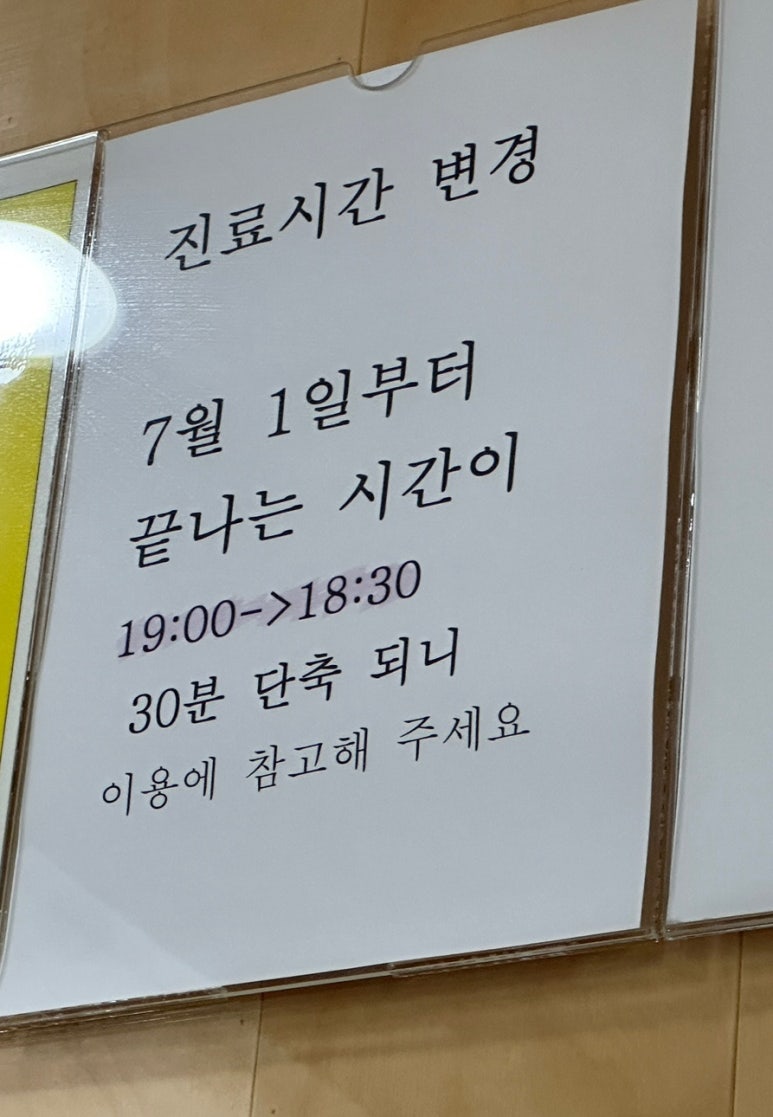 진료시간 변경
7월 1일부터
끝나는 시간이
19:00->18:30
30분 단축 되니
이용에 참고해 주세요